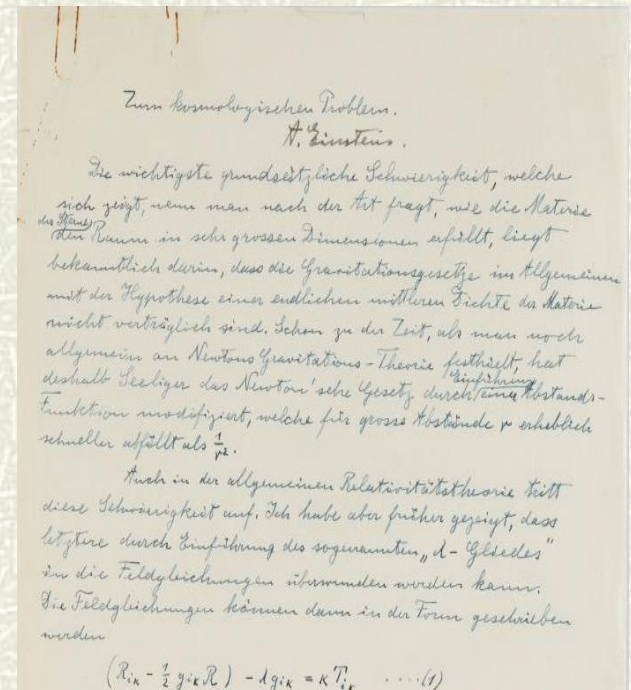 Zum kosmologischen Problem.
A. Einstein.
Die wichtigste grundsätzliche Schwierigkeit, welche
sich zeigt, wenn man nach der Art fragt, wie die Materie
den Raum in sehr grossen Dimensionen erfüllt, liegt
bekanntlich darin, dass die Gravitationsgesetze im Allgemeinen
mit der Hypothese einer endlichen mittleren Dichte der Materie
nicht verträglich sind. Schon zu der Zeit, als man noch
allgemein an Newtons Gravitations-Theorie festhielt, hat
Einführung
deshalb Seeliger das Newton'sche Gesetz durch einer Abstands-
Funktion modifiziert, welche für grosse Abstände r erheblich
schneller abfällt als 1/r².
Auch in der allgemeinen Relativitätstheorie tritt
diese Schwierigkeit auf. Ich habe aber früher gezeigt, dass
letztere durch Einführung des sogenannten „λ-Gliedes"
in die Feldgleichungen überwunden werden kann.
Die Feldgleichungen können dann in der Form geschrieben
werden
(R_ik - 1/2 g_ik R) - λg_ik = κT_ik ....(1)